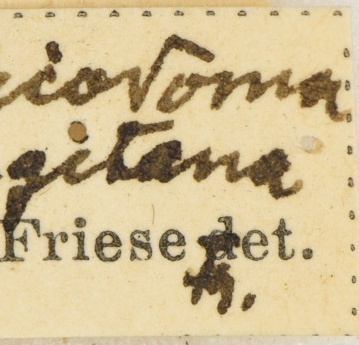 ciostoma
gitana
Friese det.